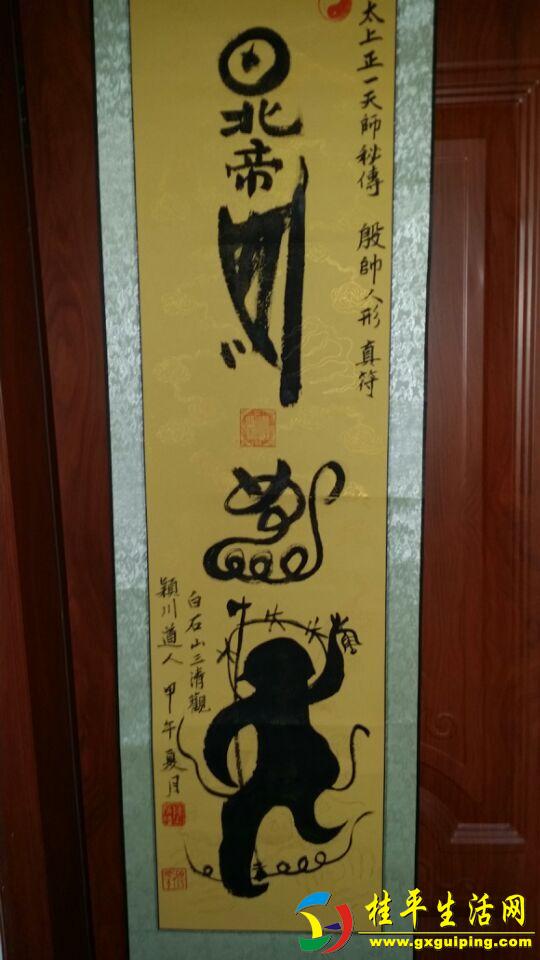 太上正一天師秘傳 殷帥人形真符
北帝
白石山三清觀
潁川道人 甲午夏月
桂平生活网
www.gxguiping.com